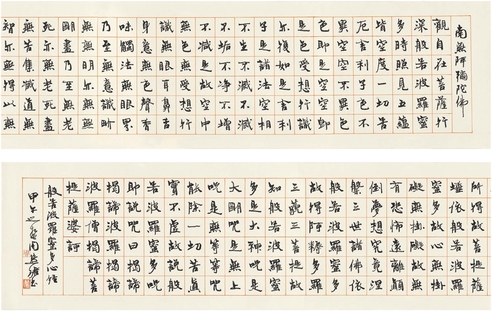 南無阿彌陀佛
觀自在菩薩行
深般若波羅蜜
多時照見五蘊
皆空度一切苦
厄舍利子色不
異空空不異色
色即是空空即
是色受想行識
亦復如是舍利
子是諸法空相
不生不滅
不垢不淨不增
不減是故空中
無色無受想行
識無眼耳鼻舌
身意無色聲香
味觸法無眼界
乃至無意識界
無無明亦無
無明盡乃至無老
死亦無老死盡
無苦集滅道無
智亦無得以無
所得故菩提薩
埵依般若波羅
蜜多故心無掛
礙無掛礙故無
有恐怖遠離顛
倒夢想究竟涅
槃三世諸佛依
般若波羅蜜多
故得阿耨多羅
三藐三菩提故
知般若波羅蜜
多是大神咒是
大明咒是無上
咒是無等等咒
能除一切苦真
實不虛故說般
若波羅蜜多咒
即說咒曰揭諦
揭諦波羅揭諦
波羅僧揭諦菩
提薩婆訶
般若波羅蜜多心經
甲午之冬周慧珺書